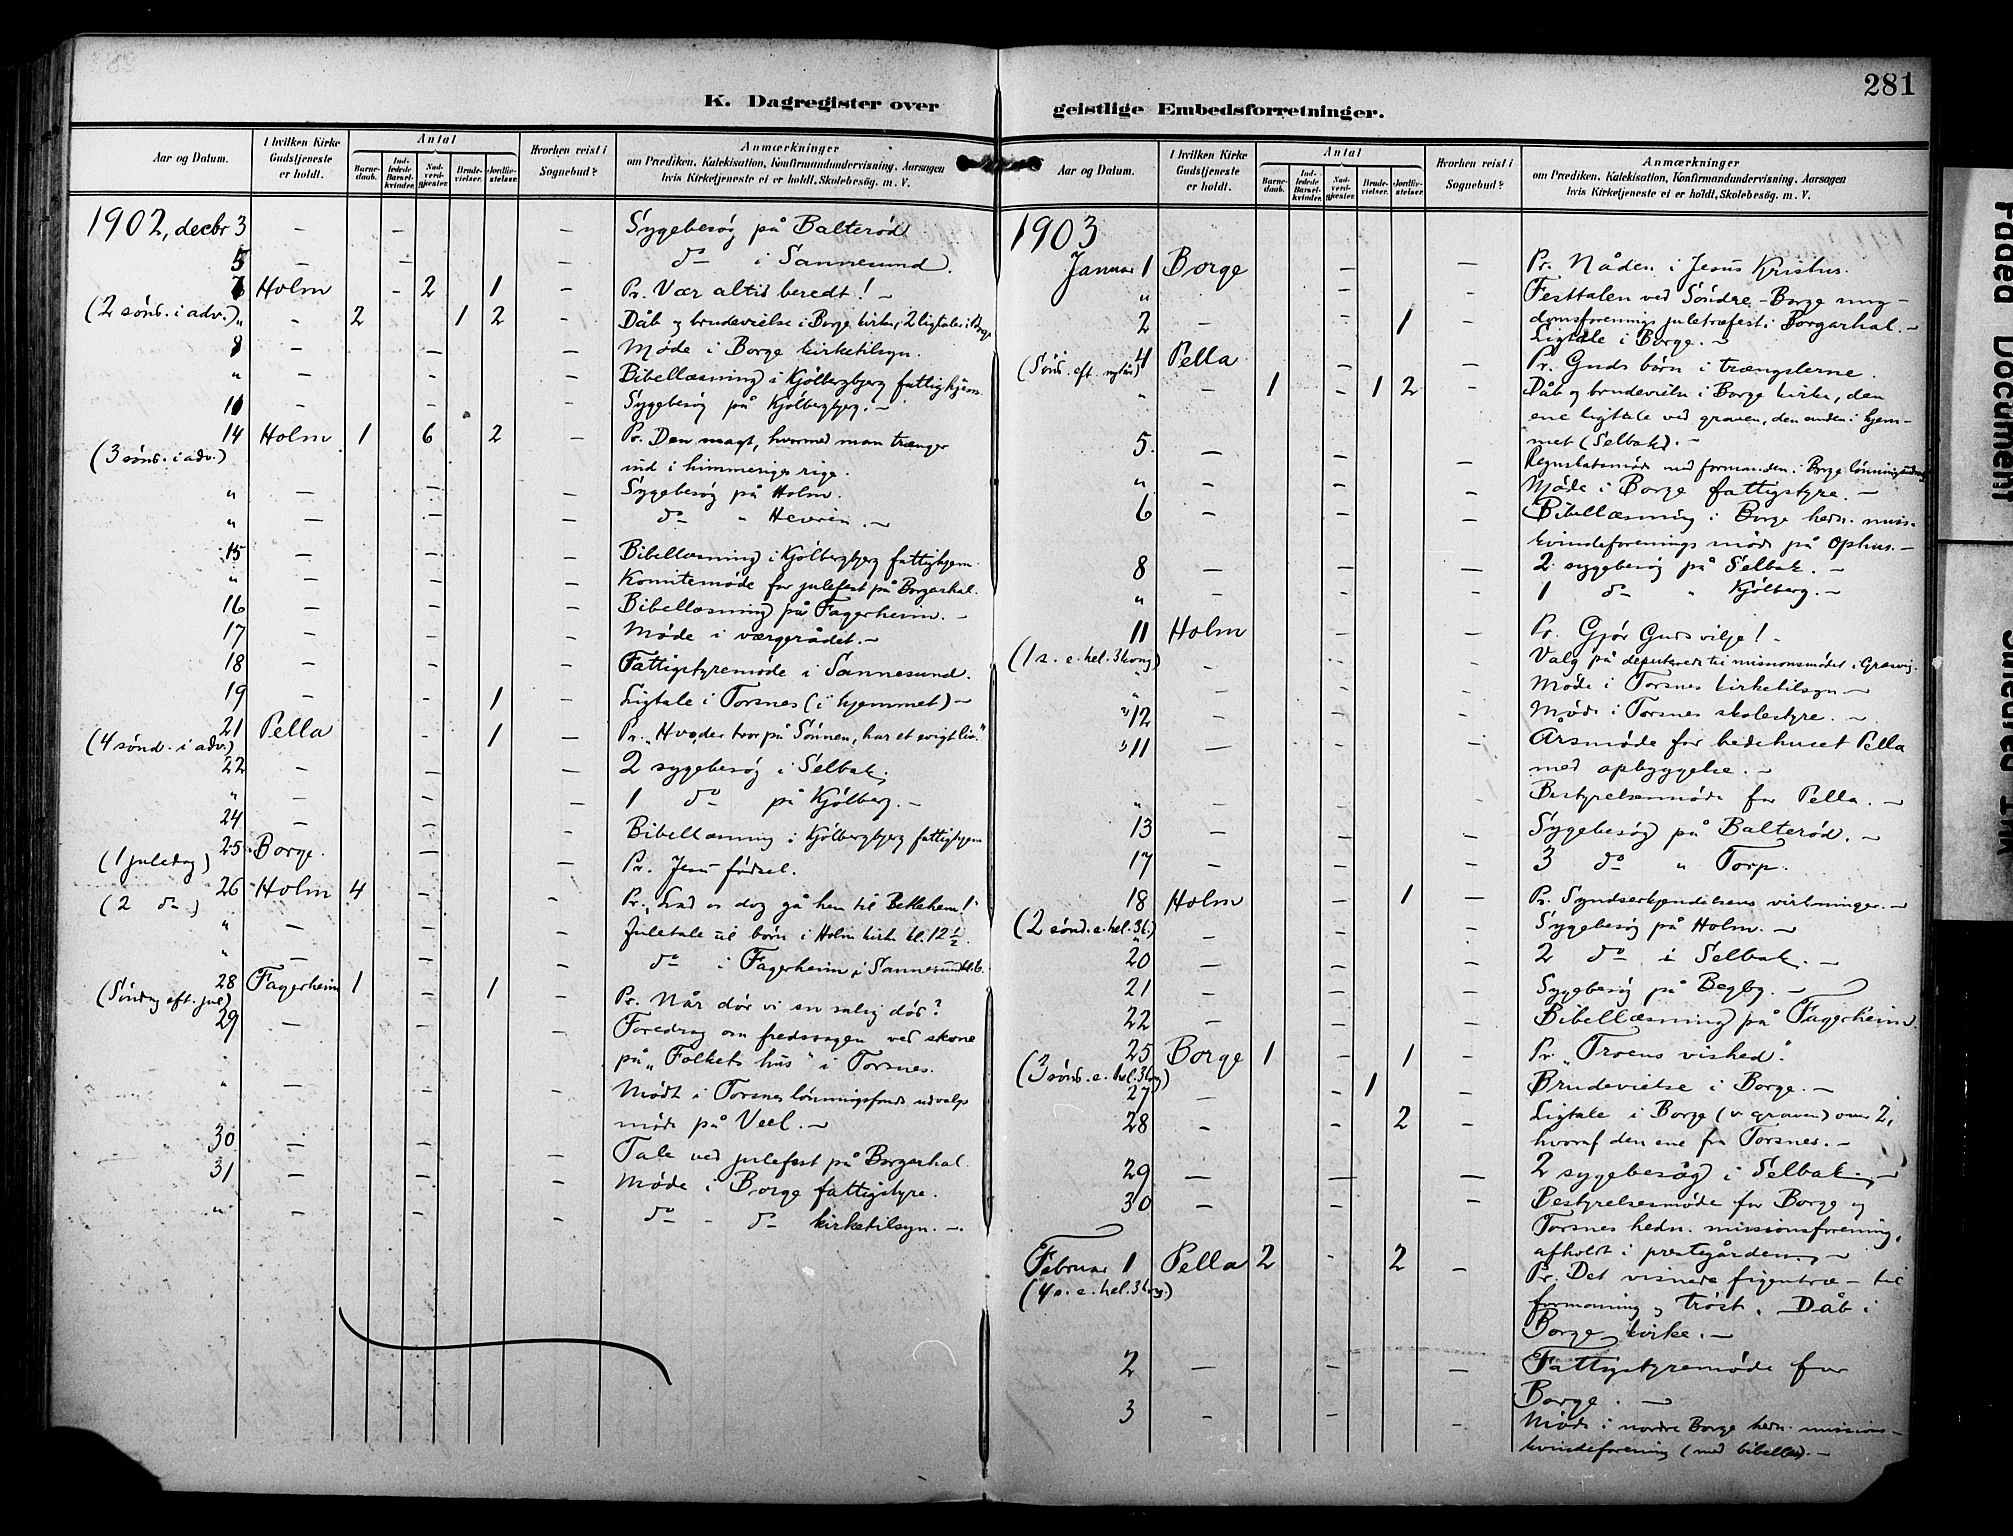 281
K. Dagregister over
geistlige Embedsforretninger.
Aar og Datum.
I hvilken Kirke Gudstjeneste er holdt.
Antal
Barne-daab.
Ind-ledede Barsel-kvinder.
Nad-verd-gjester.
Brude-vielser.
Jordfæ-stelser.
Hvorhen reist i Sognebud?
Anmærkninger
om Prædiken, Katekisation, Konfirmandundervisning, Aarsagen
hvis Kirketjeneste ei er holdt, Skolebesøg. m. V.
1902, decbr 3 - - - Sygebesøg på Balterød
5 - - - do i Sannesund.
7 Holm - 2 1 - Pr. Vær altid beredt! -
(2 sønd. i adv.) " - 2 1 2 - Dåb og brudevielse i Borge kirke, 2 ligtaler i Borge
8 - - - Møde i Borge kirketilsyn.
" - - - Bibellæsning i Kjølbergbjerg fattighjem.
11 - - - Sygebesøg på Kjølbergbjerg. -
14 Holm 1 6 2 - Pr. Den magt, hvormed man trænger
(3 sønd. i adv.) ind i himmeriges rige.
" - - - Sygebesøg på Holm.
" - - - do " -
15 - - - Bibellæsning i Kjølbergbjerg fattighjem.
" - - - Komitemøde for julefest på Borgarhal.
16 - - - Bibellæsning på Fagerheim. -
17 - - - Møde i værgerådet. -
18 - - - Fattigstyremøde i Sannesund.
19 - - 1 - Ligtale i Torsnes (i hjemmet) -
21 Pella - 1 - Pr. "Hvo, der tror på Sønnen, har et evigt liv."
(4 sønd. i adv.)
22 - - - 2 sygebesøg i Selbak.
" - - - 1 do på Kjølberg. -
24 - - Bibellæsning i Kjølbergbjerg fattighjem
25 Borge. - - Pr. Jesu fødsel.
(1 juledag)
26 Holm 4 - - Pr. "Lad os dog gå hen til Betlehem!"
(2 do)
" - - - Juletale til børn i Holm kirke kl. 12 1/2.
" - - - do i Fagerheim i Sannesund kl. 6.
28 Fagerheim 1 1 - Pr. Når dør vi en salig død?
(Søndag eft. jul)
29 - - - Foredrag om fredssagen ved skove
på "Folkets hus" i Torsnes.
" - - - Mødt i Torsnes lønningsfonds udvalgs
møde på Veel. -
30 - - - Tale ved julefest på Borgarhal.
31 - - - Møde i Borge fattigstyre.
" - - - do - do kirketilsyn. -
Aar og Datum.
I hvilken Kirke Gudstjeneste er holdt.
Antal
Barne-daab.
Ind-ledede Barsel-kvinder.
Nad-verd-gjester.
Brude-vielser.
Jordfæ-stelser.
Hvorhen reist i Sognebud?
Anmærkninger
om Prædiken, Katekisation, Konfirmandundervisning, Aarsagen
hvis Kirketjeneste ei er holdt, Skolebesøg. m. V.
1903
Januar 1 Borge - - Pr. Nåden i Jesus Kristus.
" - - Festtalen ved Søndre-Borge ung-
domsforenings juletræfest i Borgarhal. -
2 - - 1 - Ligtale i Borge. -
4 Pella - Pr. Guds børn i trængslerne.
(Sønd. eft. nytår)
" - 1 - 1 2 - Dåb og brudevielse i Borge kirke, den
ene ligtale ved graven, den anden i hjem-
met (Selbak). -
5. - - - Regnskabsmøde med formanden i Borge
" - - - Møde i Borge fattigstyre. -
6 - - - Bibellæsning i Borge hedn. miss.
kvindeforenings møde på Ophus. -
8 - - - 2 sygebesøg på Selbak. -
" - - - 1 do " Kjølberg. -
11 Holm - - Pr. Gjør Guds vilje! -
(1 s. e. hel. 3 kong)
" - - - Valg på deputerede til missionsmødet i
" - - - Møde i Torsnes kirketilsyn -
12 - - - Møde i Torsnes skolestyre. -
11 - - - Årsmøde for bedehuset Pella
med opbyggelse. -
" - - - Bestyrelsesmøde for Pella. -
13 - - - Sygebesøg på Balterød. -
17 - - - 3 do " Torp.
18 Holm - 1 - Pr. Syndserkjendelsens virkninger. -
(2 sønd. e. hel. 3 k.)
" - - - Sygebesøg på Holm. -
20 - - - 2 do i Selbak. -
21 - - - Sygebesøg på Begby. -
22 - - - Bibellæsning på Fagerheim.
25 Borge 1 - 1 - Pr. "Troens vished."
(3 sønd. e. hel. 3 kong)
27 - 1 - Brudevielse i Borge. -
28 - - 2 - Ligtale i Borge (v. graven) over 2,
hvoraf den ene fra Torsnes. -
29 - - - 2 sygebesøg i Selbak. -
30 - - - Bestyrelsesmøde for Borge og
Torsnes hedn. missionsforening,
afholdt i prestegården. -
Februar 1 Pella 2 - 2 - Pr. Det visnede figentræ - til
(4 s. e. hel. 3 kong.) formaning og trøst. Dåb i
Borge kirke. -
2 - - - Fattigstyremøde for
Borge. -
3 - - - Møde i nordre Borge hedn. missions-
kvindeforening (med bibellæs). -
Faded Document